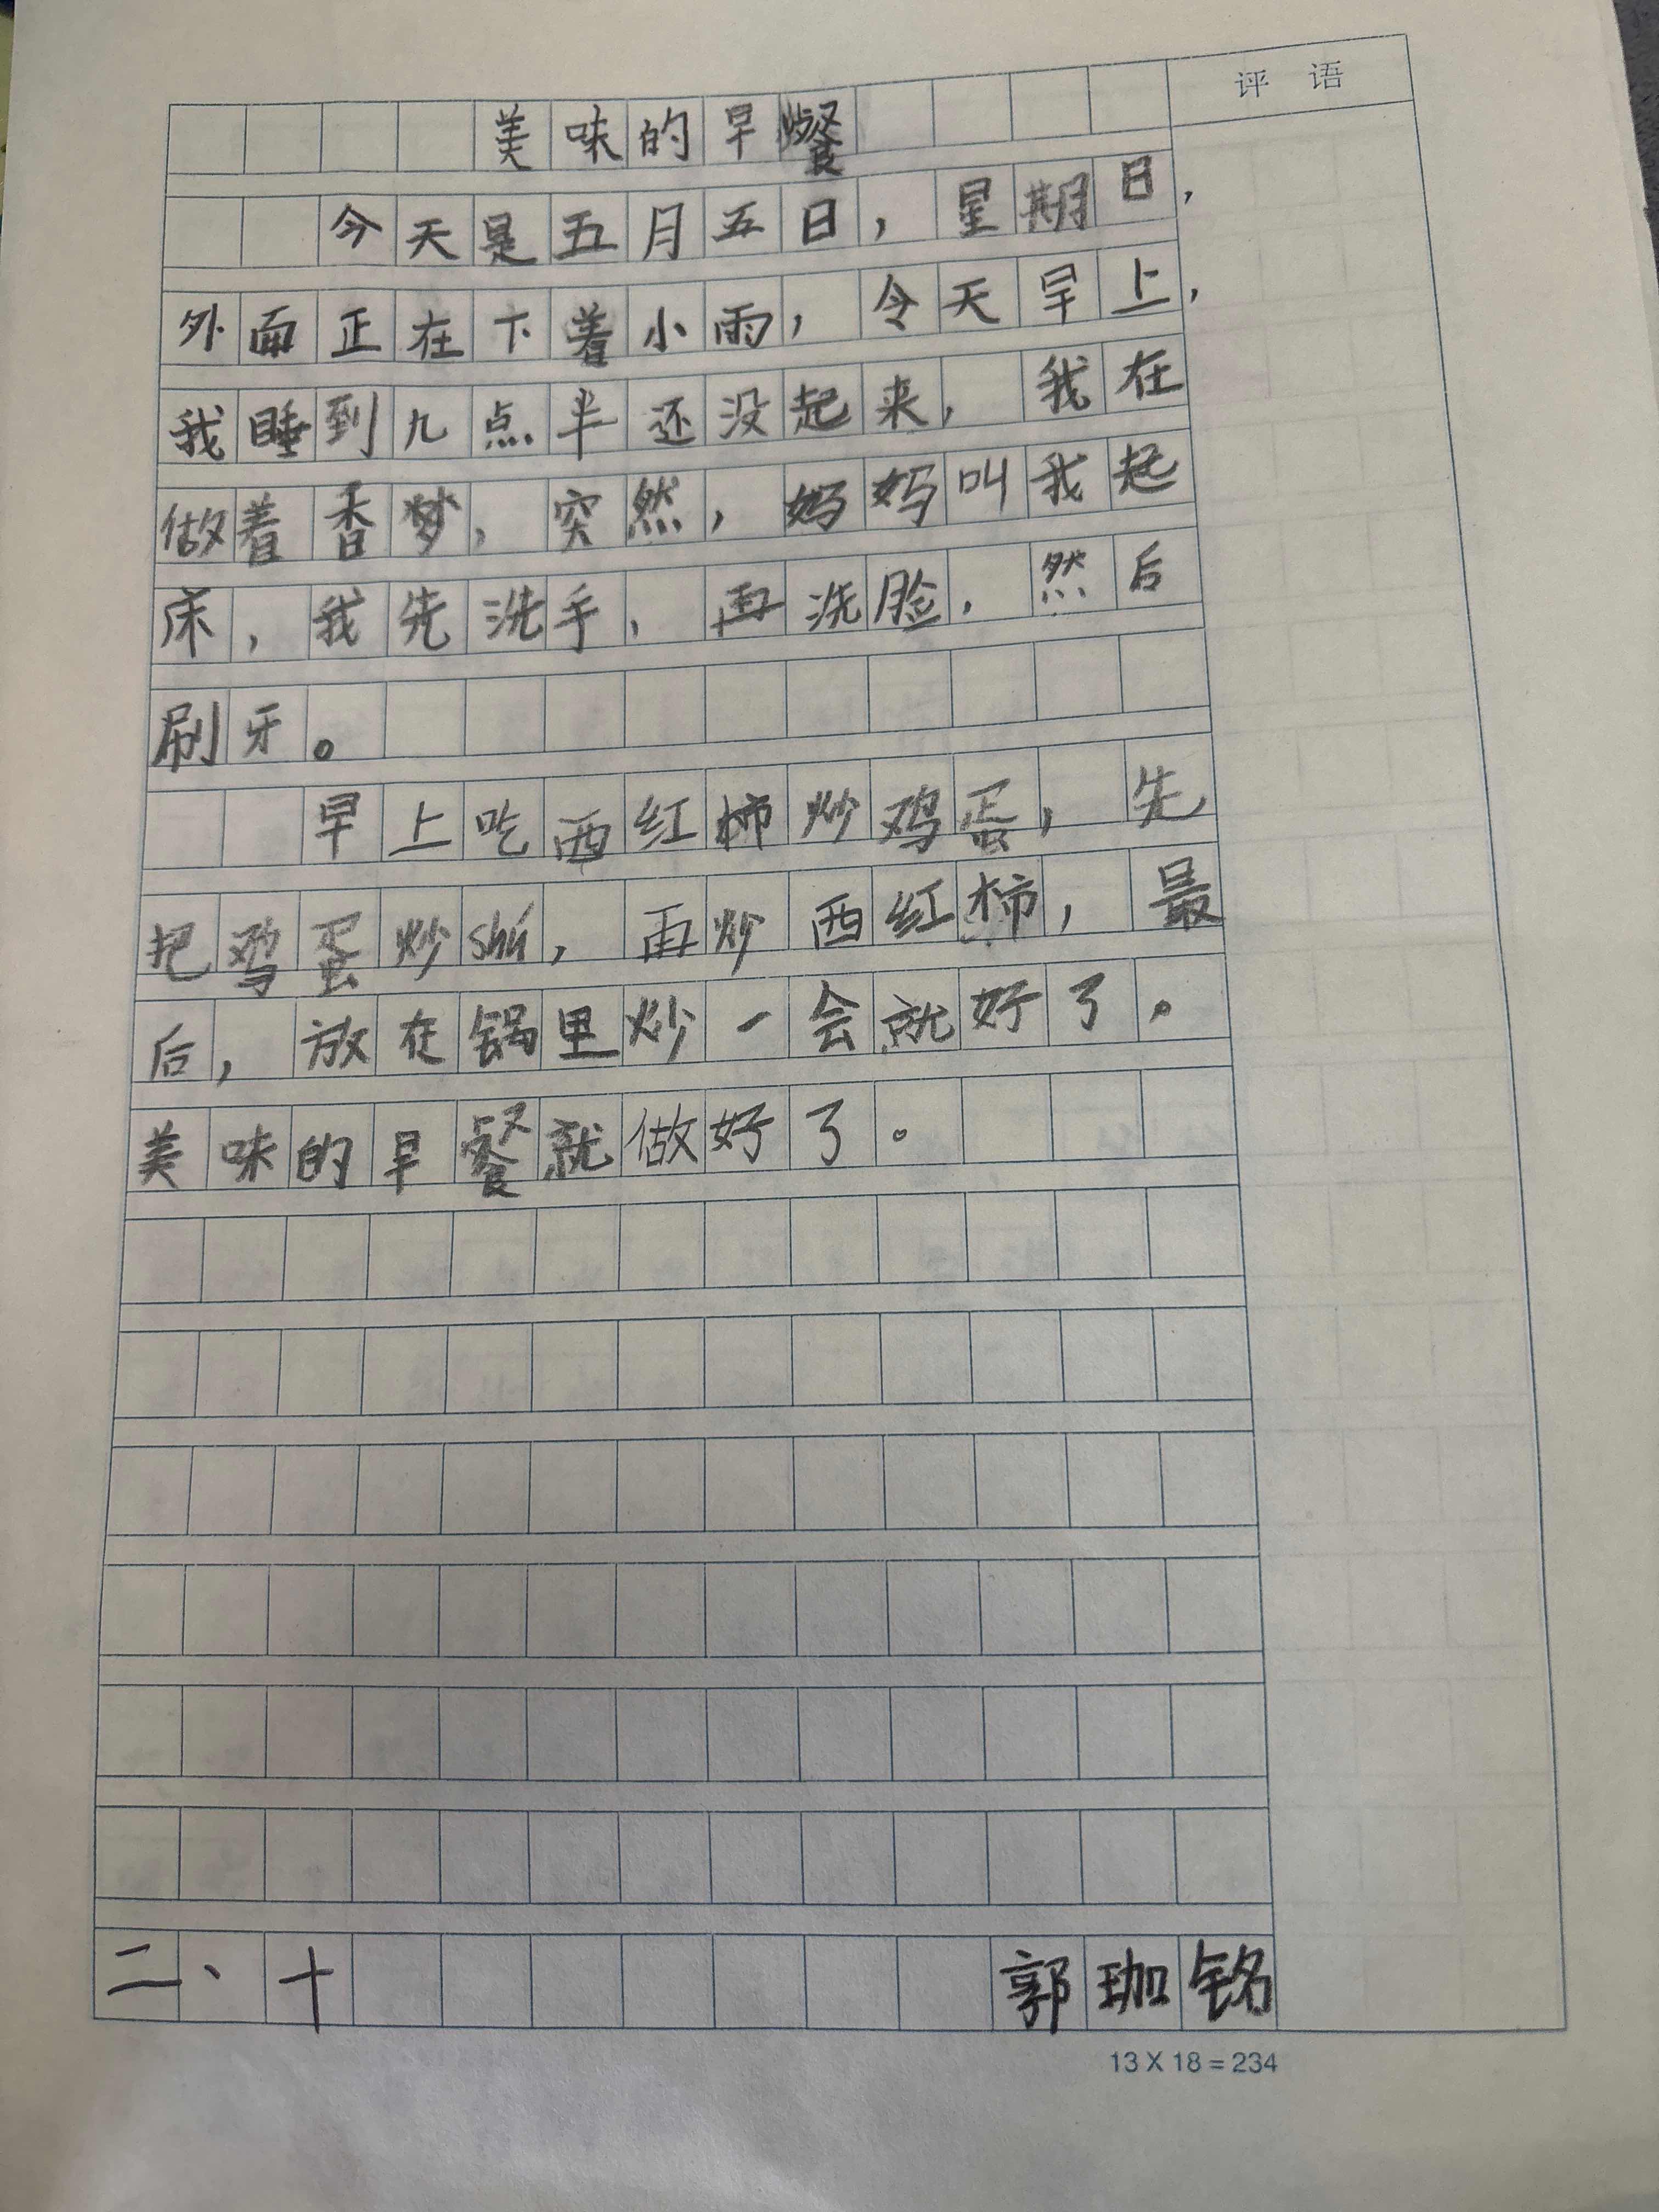 评语
美味的早餐
今天是五月五日，星期日，
外面正在下着小雨，今天早上，
我睡到九点半还没起来，我在
做着香梦，突然，妈妈叫我起
床，我先洗手，再洗脸，然后
刷牙。
早上吃西红柿炒鸡蛋，先
把鸡蛋炒shú，再炒西红柿，最
后，放在锅里炒一会就好了。
美味的早餐就做好了。
二、十 郭珈铭
13 X 18 = 234